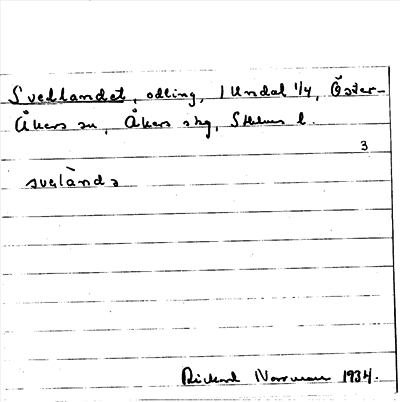 Svedlandet, odling, 1 Undal 1/4, Öster-
Åkers sn, Åkers skg, Sthlms l.
3
svelànda
Rickard Norrman 1934.